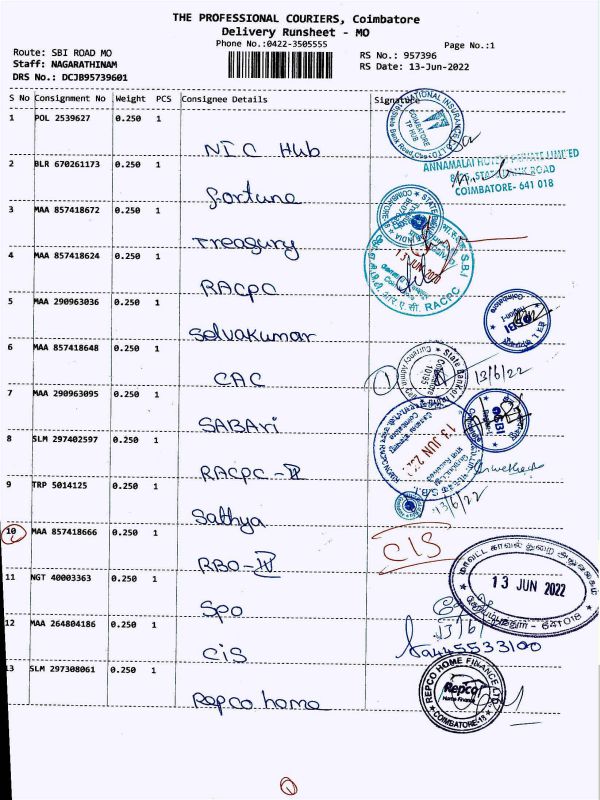 THE PROFESSIONAL COURIERS, Coimbatore
Delivery Runsheet - MO
Phone No.:0422-3505555
Page No.:1
Route: SBI ROAD MO
RS No.: 957396
Staff: NAGARATHINAM
RS Date: 13-Jun-2022
DRS No.: DCJB95739601
S No Consignment No Weight PCS Consignee Details Signature
1 POL 2539627 0.250 1
NIC Hub
2 BLR 670261173 0.250 1
fortune
3 MAA 857418672 0.250 1
Treasury
4 MAA 857418624 0.250 1
RACPC
5 MAA 290963036 0.250 1
Selvakumar
6 MAA 857418648 0.250 1
CAC
7 MAA 290963095 0.250 1
SABARi
8 SLM 297402597 0.250 1
RACPC-II
9 TRP 5014125 0.250 1
Sathya
10 MAA 857418666 0.250 1
RBO-IV
11 NGT 40003363 0.250 1
SPO
12 MAA 264804186 0.250 1
CiS
13 SLM 297308061 0.250 1
Repco home
COIMBATORE
TP HUB
ANNAMALAI HOTELS PRIVATE LIMITED
STATE BANK ROAD
COIMBATORE- 641 018
S.B.I. RACPC
SBI
1
13/6/22
SBI
13 JUN
13/6/22
CIS
13 JUN 2022
13/6/
REPCO HOME FINANCE LTD
Repco
Home Finance
COIMBATORE-13